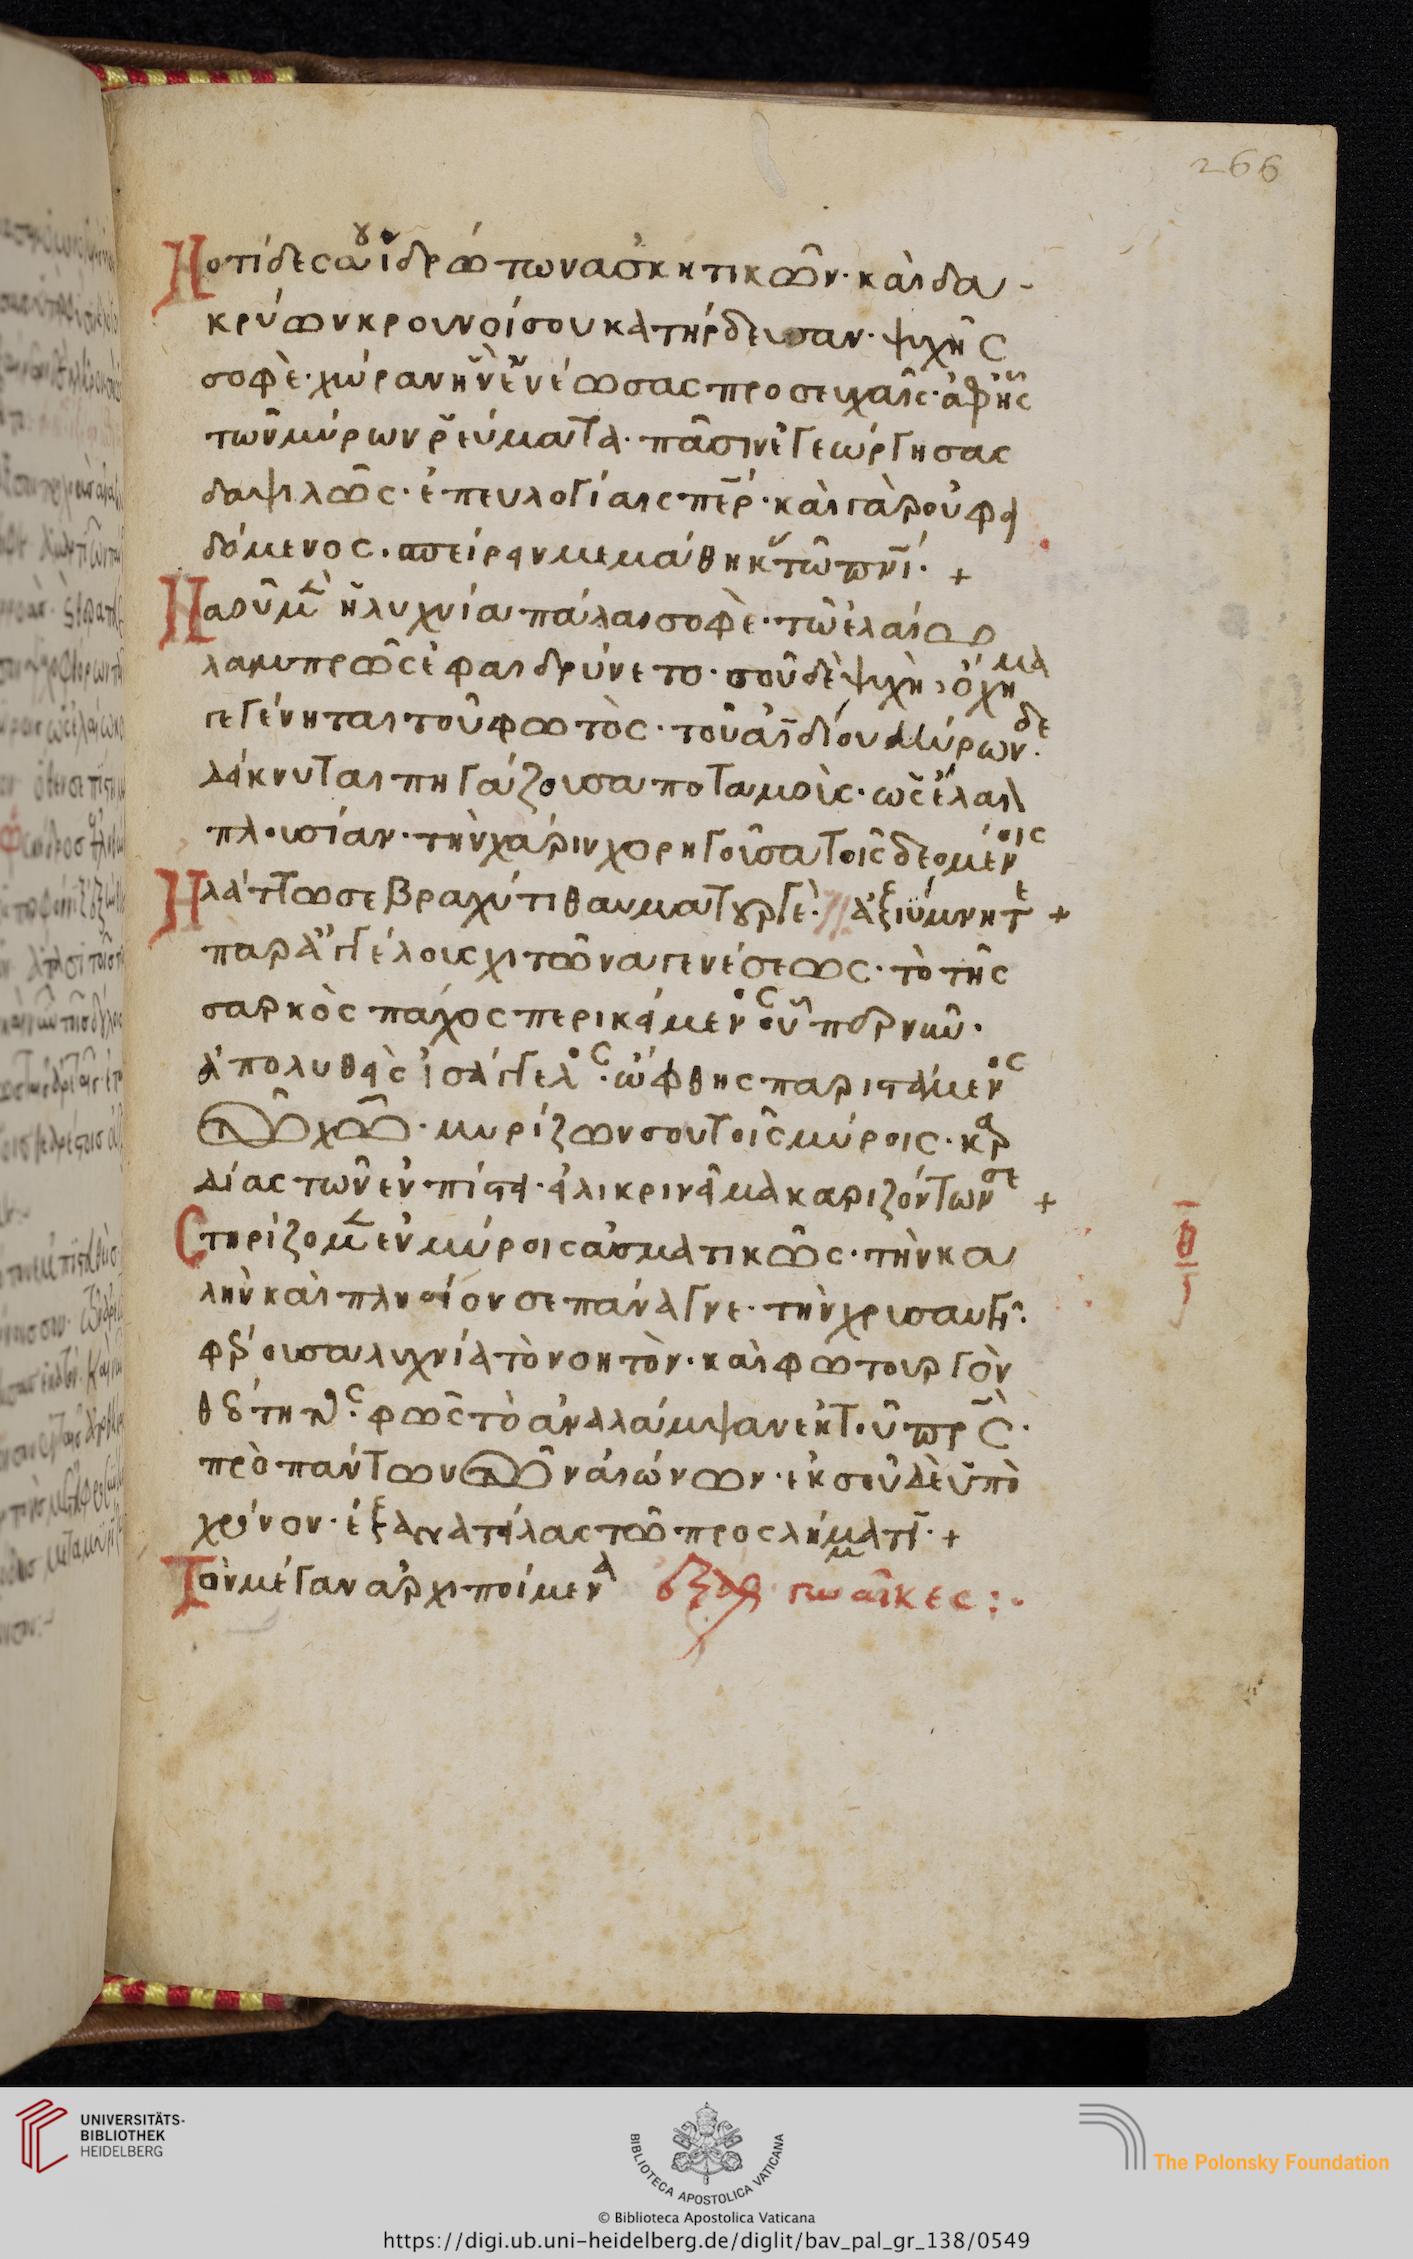 266
Νοτίδες σου ἱδρώτων ἀσκητικῶν· καὶ δα-
κρύων κρουνοί σου κατήρδευσαν· ψυχῆς
σοφὲ· χώραν ἣν ἐνέωσας προσευχαῖς·
τῶν μύρων ῥεύματα· πᾶσιν ἐγεώργησας
δαψιλῶς· ἐπευλογίαις περ· καὶ γὰρ οὐ φει
δόμενος· σπείρειν μεμάθηκας τῶ πνι· +
Ναοῦ μὲν ἡ λυχνία πάλαι σοφὲ· τῶ ἐλαίω
λαμπρῶς ἐφαιδρύνετο· σοῦ δὲ ψυχὴ, ὄχημα
γεγένηται τοῦ φωτὸς· τοῦ ἀϊδίου μύρων δὲ·
δείκνυται πηγάζουσα ποταμοὺς· ὡς ἔλαιον
πλουσίαν· τὴν χάριν χορηγοῦσα τοῖς δεομένοις
Ἠλάττωσε βραχύτι θαυματουργὲ· ἀξιύμνητε +
παρ ἀγγέλους χιτῶνα γενέσεως· τὸ τῆς
σαρκὸς πάχος περικείμενος· οὗπερ νῦν·
ἀπολυθεὶς ἰσάγγελος· ὤφθης παριστάμενος
τῶ χῶ· μυρίζων σου τοῖς μύροις· καρ
δίας τῶν ἐν πίστει· εἰλικρινεῖ μακαριζόντων σε +
Στηριζόμεν ἐν μύροις ἀσματικῶς· τὴν κα
λὴν καὶ πλησίον σε πάναγνε· τὴν χρυσαυγῆ·
φέρουσα λυχνία τὸν νοητὸν· καὶ φωτουργὸν
θεότητος· φῶς τὸ ἀναλάμψαν ἐκ τοῦ πρς·
πρὸ πάντων τῶν αἰώνων· ἐκ σοῦ δὲ ὑπὸ
χρόνον· ἐξανατείλας τῶ προσλήμματι· +
Τὸν μέγαν ἀρχιποίμενα γυναῖκες :·
UNIVERSITÄTS-
BIBLIOTHEK
HEIDELBERG
BIBLIOTECA APOSTOLICA VATICANA
© Biblioteca Apostolica Vaticana
The Polonsky Foundation
https://digi.ub.uni-heidelberg.de/diglit/bav_pal_gr_138/0549